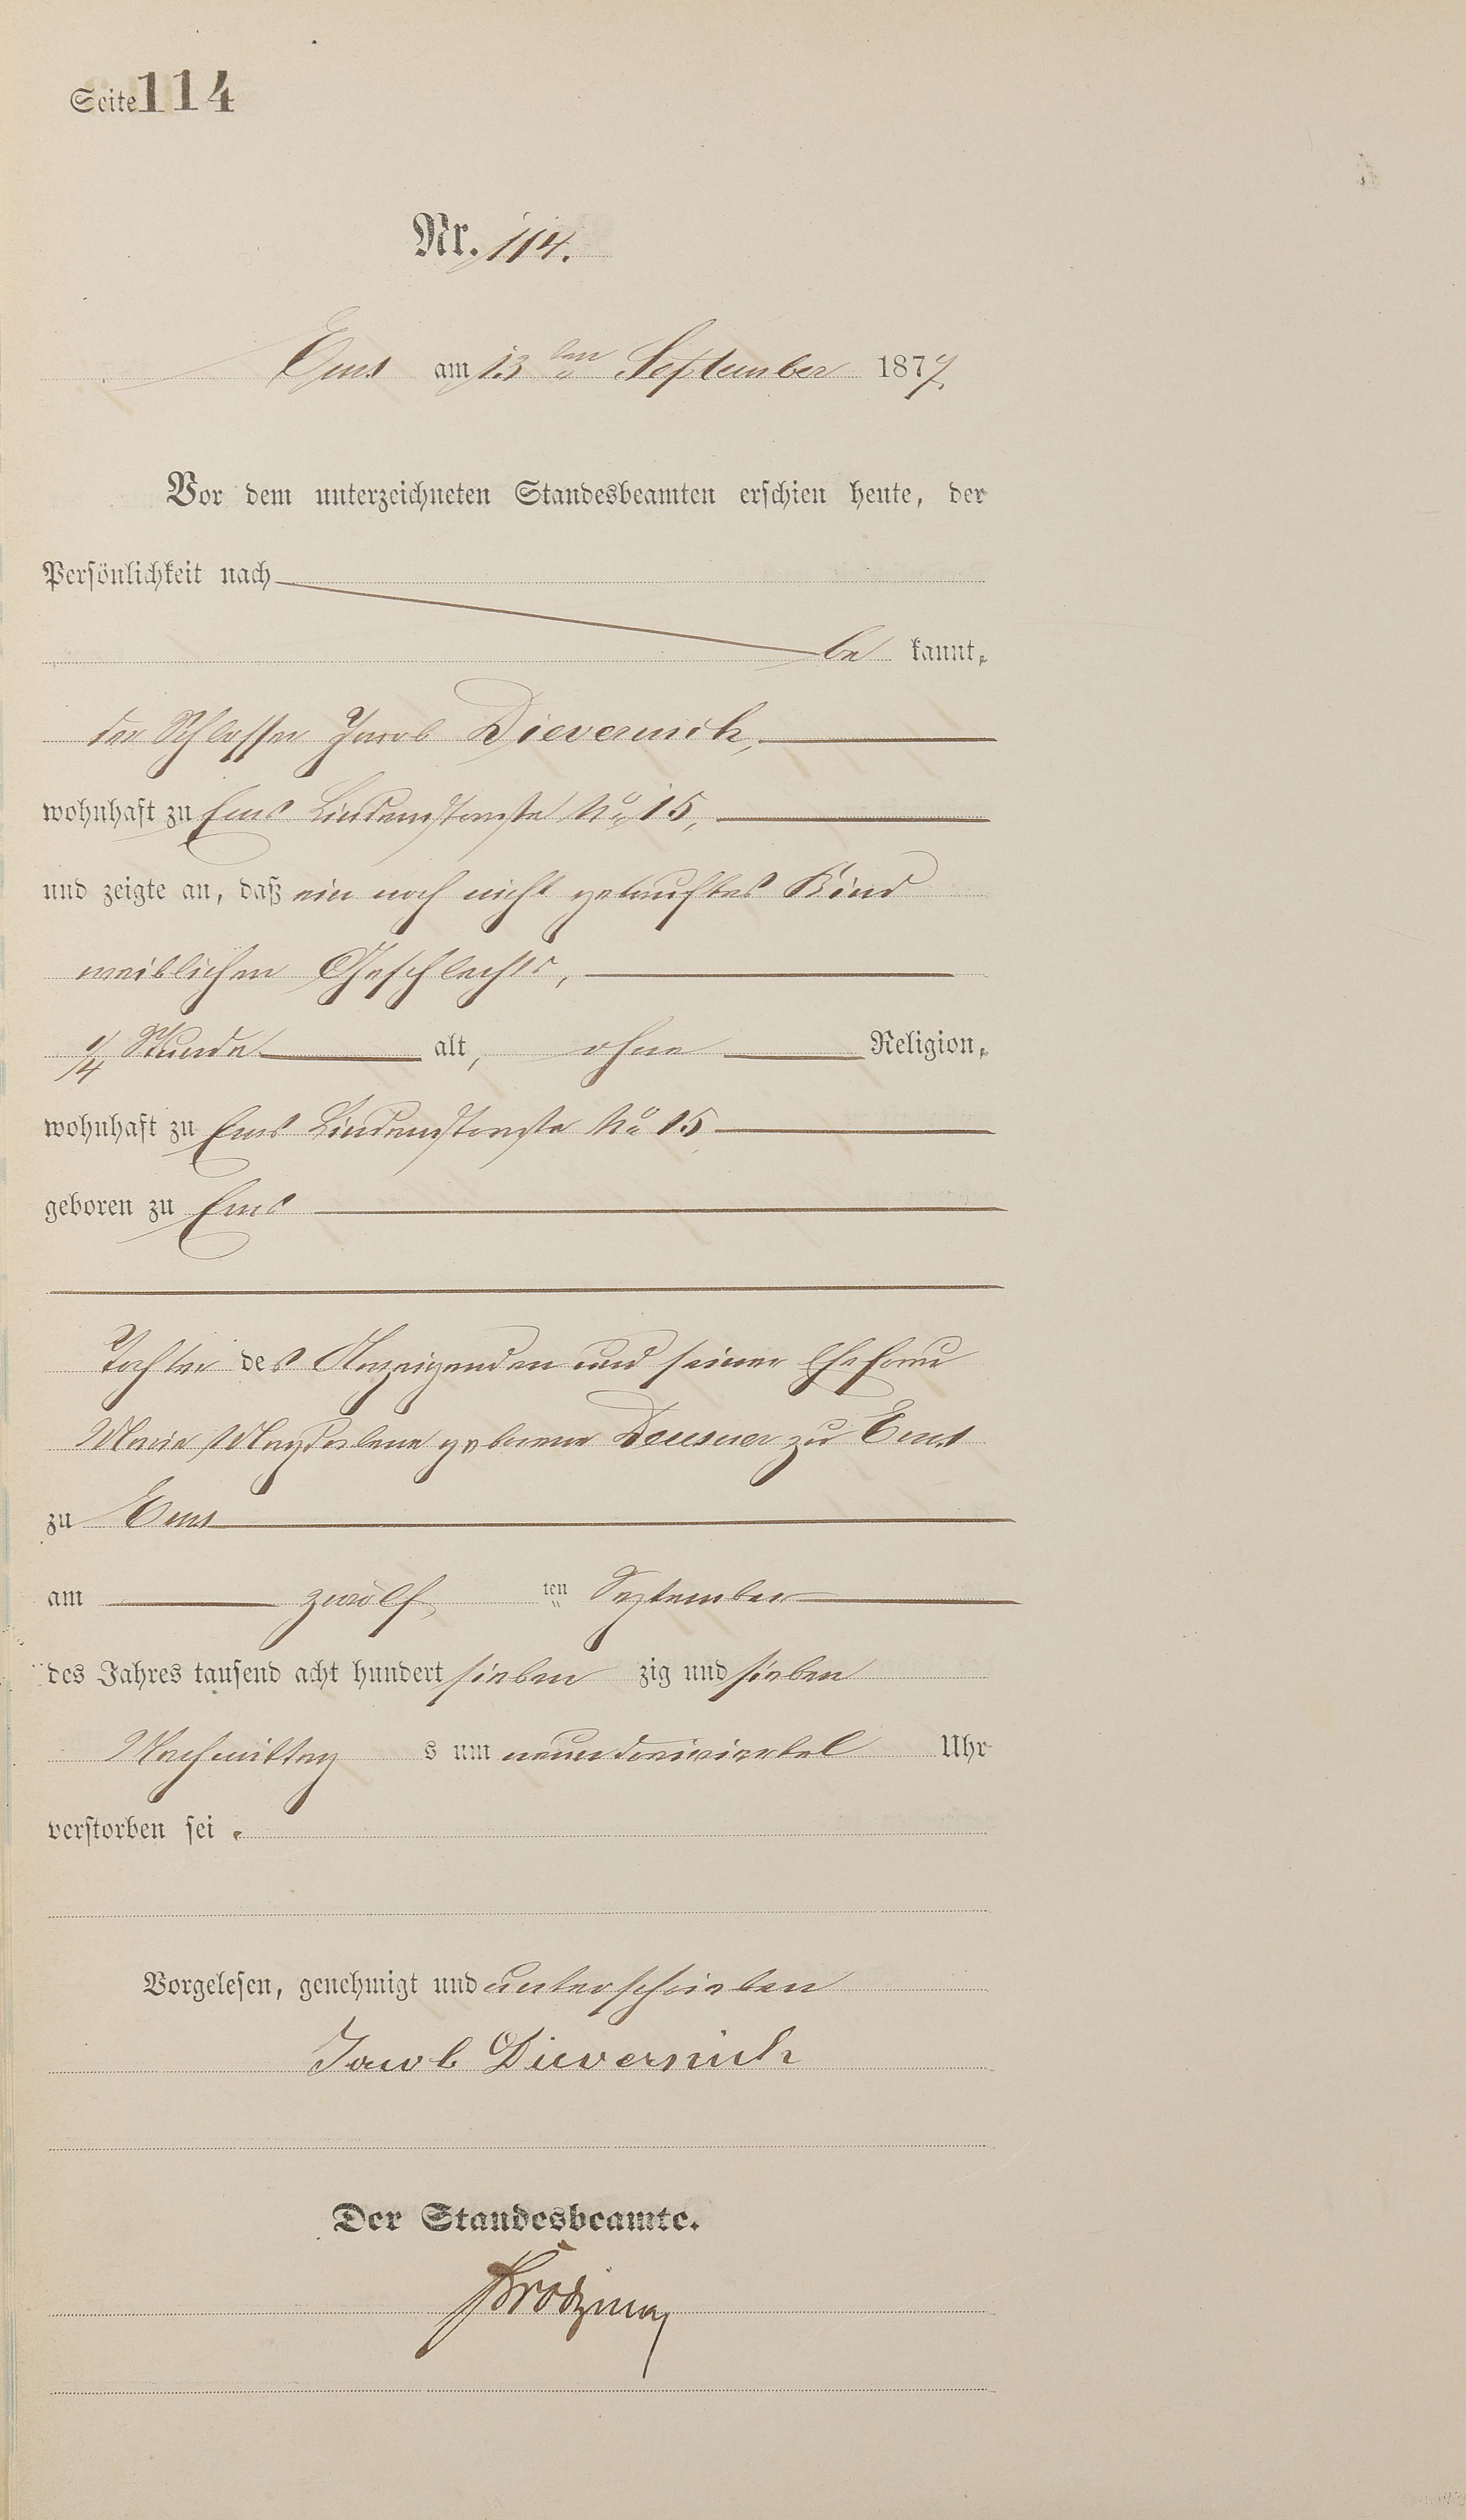 Seite 114
Nr. 114.
Ems am 13ten September 1877.
Vor dem unterzeichneten Standesbeamten erschien heute, der
Persönlichkeit nach
be kannt,
der Schlosser Jacob Dievernich,
wohnhaft zu Ems Lindenstraße No 15,
und zeigte an, daß ein noch nicht getauftes Kind
weiblichen Geschlechts,
1/4 Stunde alt, ohne Religion,
wohnhaft zu Ems Lindenstraße No 15
geboren zu Ems
Tochter des Anzeigenden und seiner Ehefrau
Marie Magdalene geborene Deusner zu Ems
zu Ems
am zwölf ten September
des Jahres tausend acht hundert sieben zig und sieben
Nachmittag s um neundreiviertel Uhr
verstorben sei.
Vorgelesen, genehmigt und unterschrieben
Jacob Dievernich
Der Standesbeamte.